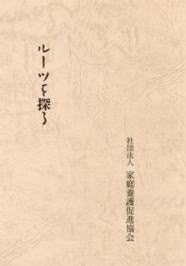 ルーツを探る
社団法人 家庭養護促進協会